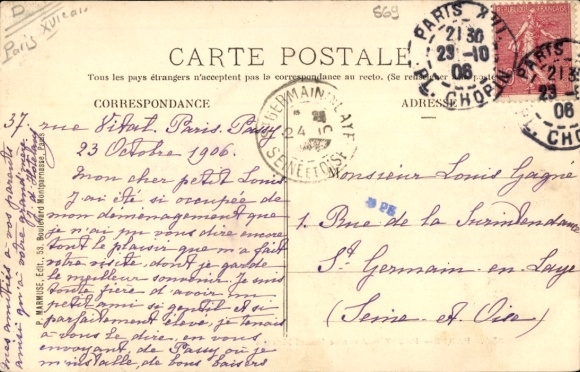 D
Paris XVI
569
CARTE POSTALE
Tous les pays étrangers n'acceptent pas la correspondance au recto. (Se renseigner
CORRESPONDANCE
ADRESSE
PARIS XVI
21 30
23 -10
06
CHOPIN
PARIS
21
23
06
CHO
ST GERMAIN-EN-LAYE
24
SEINE ET OISE
37, rue Vital. Paris. Passy
23 Octobre 1906.
Mon cher petit Louis
J'ai été si occupée de
mon déménagement que
je n'ai pu vous dire encore
tout le plaisir que m'a fait
votre visite, dont je garde
le meilleur souvenir. Je suis
toute fière d'avoir un
petit ami si gentil et si
parfaitement élevé, je tenais
à vous le dire, en vous
envoyant, de Passy où je
m'installe, de bons baisers
mes amitiés à vos parents
ainsi qu'à votre grand'mère
P. MARMUSE, Édit., 53, Boulevard Montparnasse, Paris
Monsieur Louis Gagné
1. Rue de la Surintendance
St Germain-en-Laye
(Seine-et-Oise)